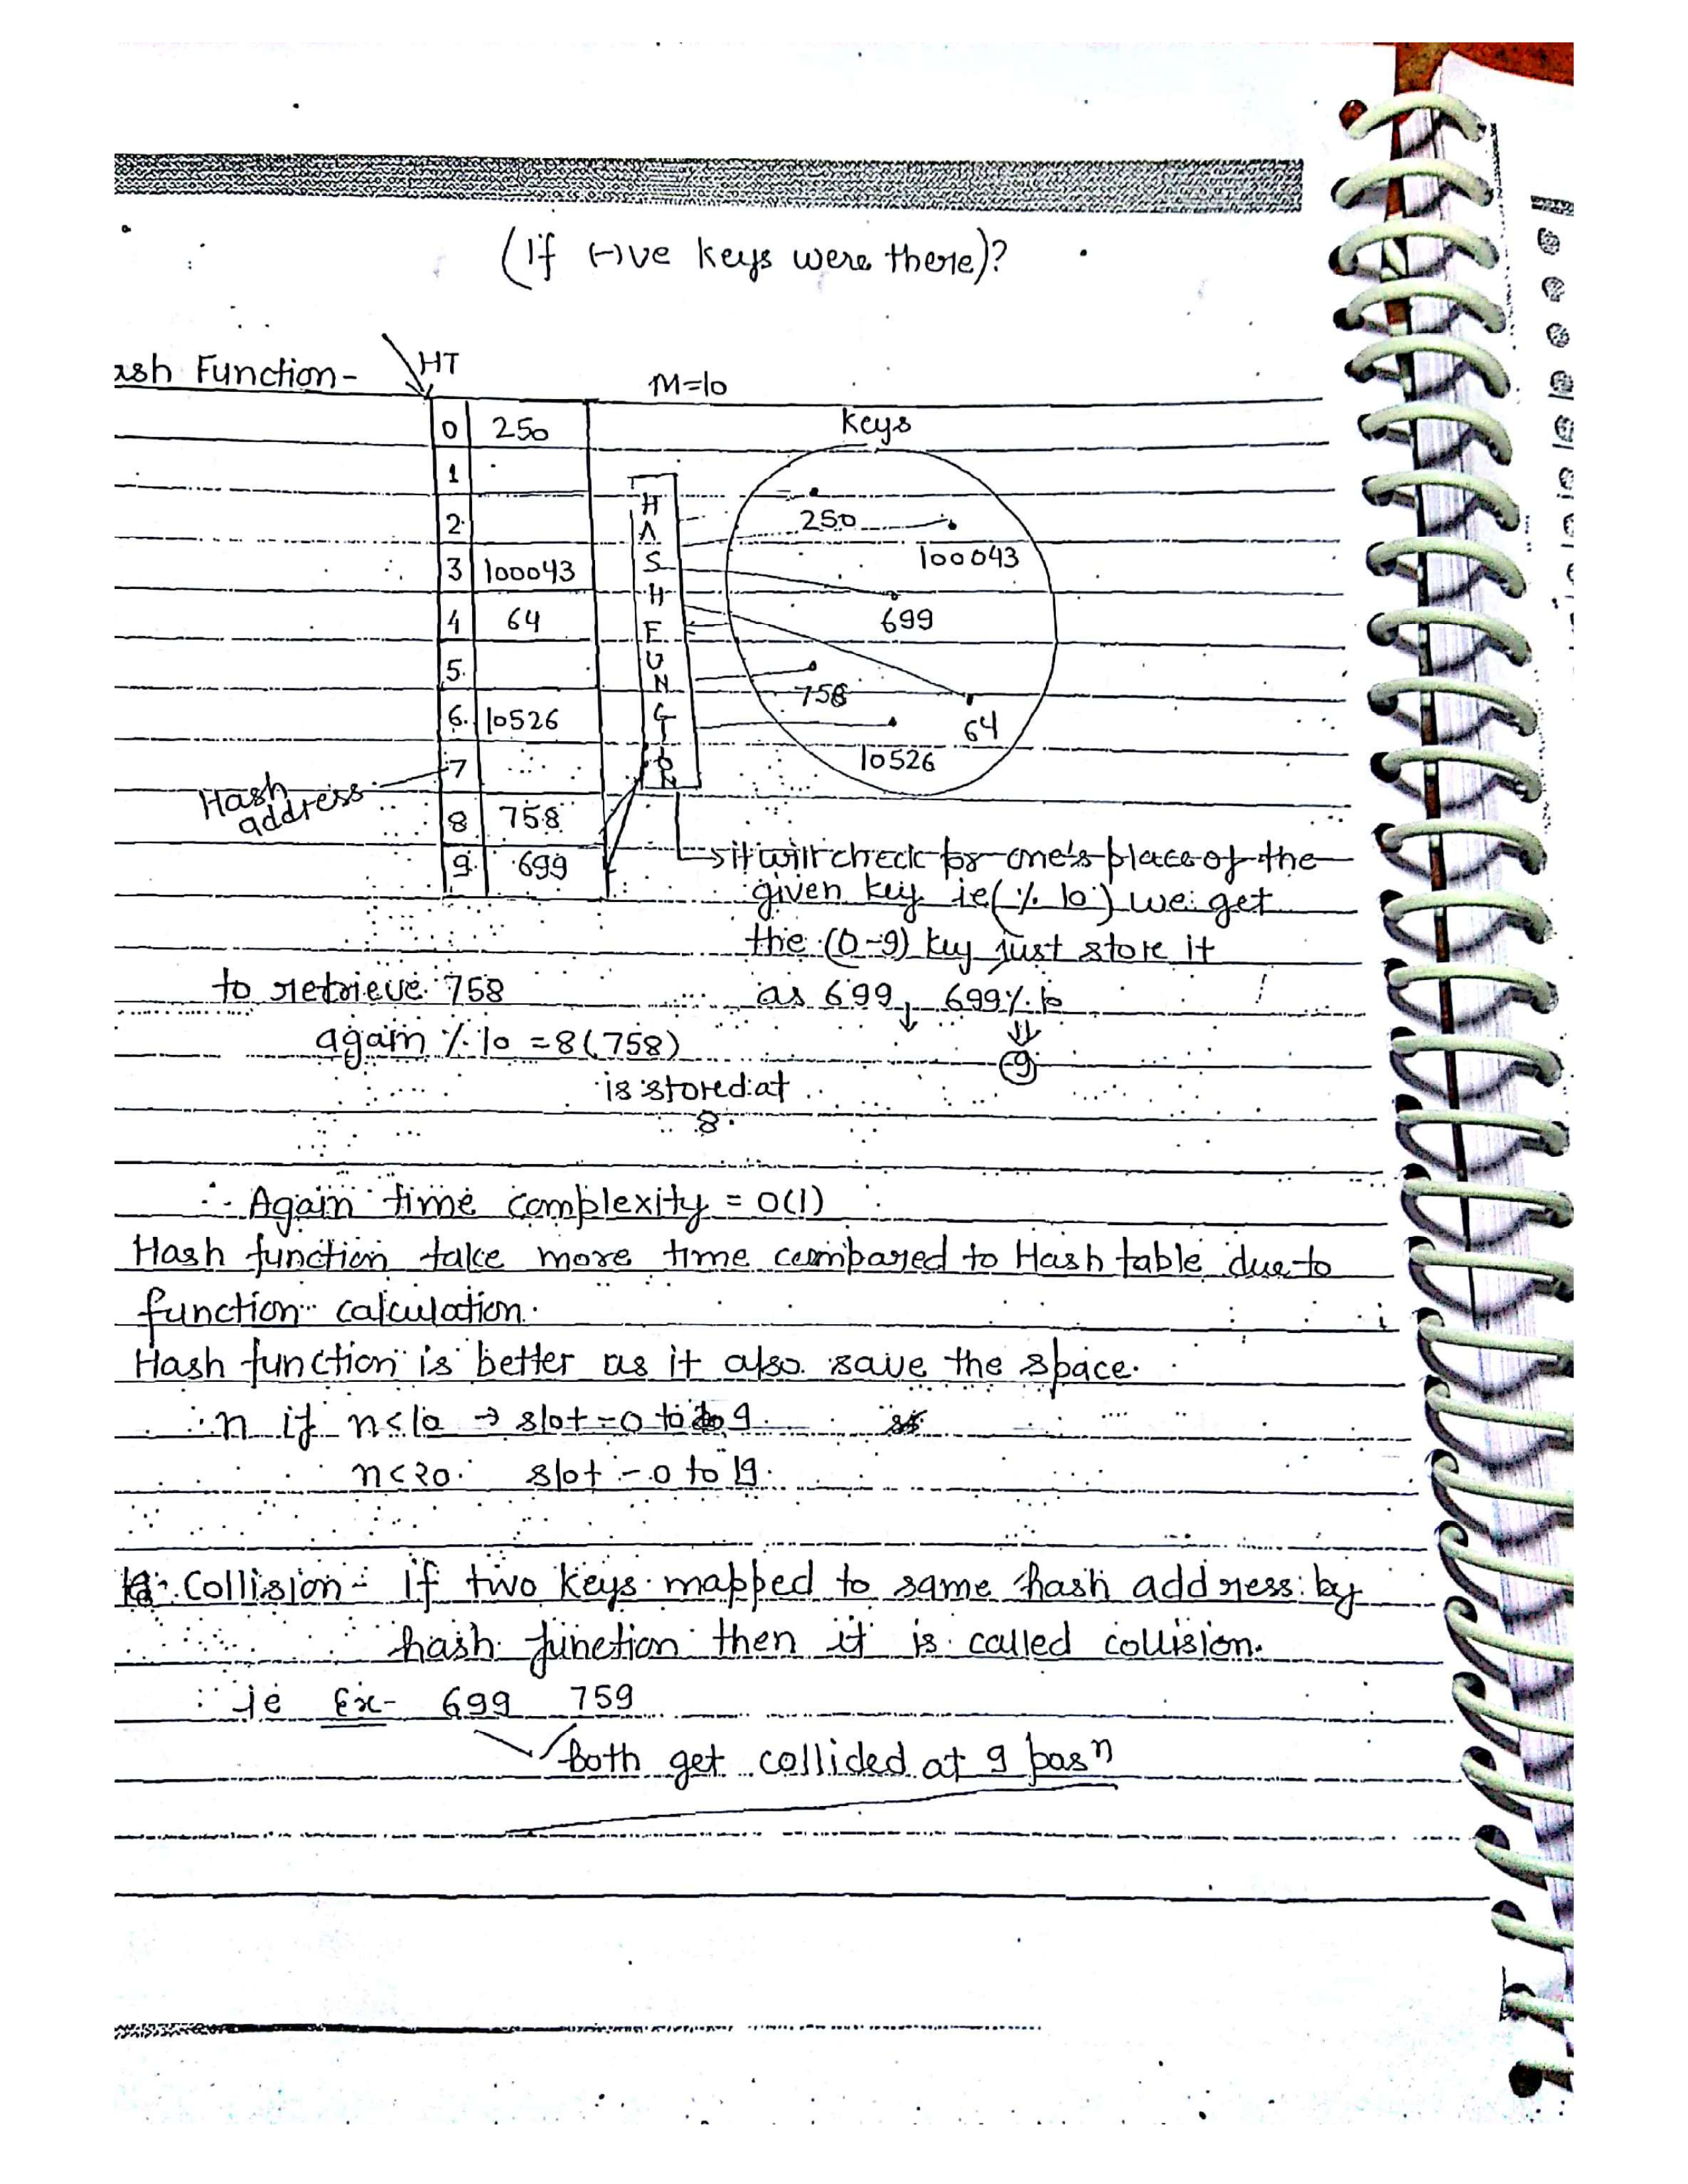 (If (-)ve keys were there)?
ash Function-
HT
M=10
keys
0 250
1
2
3 100043
4 64
5
6 10526
7
8 758
9 699
HASH FUNCTION
250
100043
699
758
64
10526
Hash address
it will check for one's place of the
given key ie (% 10) we get
the (0-9) key just store it
as 699, 699 % 10
9
to retrieve 758
again % 10 = 8 (758)
is stored at
8.
∴ Again time complexity = O(1)
Hash function take more time compared to Hash table due to
function calculation.
Hash function is better as it also save the space.
∴ n if n<10 → slot - 0 to 9.
n<20. slot - 0 to 19.
Collision - If two keys mapped to same hash address by
hash function then it is called collision.
ie Ex- 699 759
both get collided at 9 posn